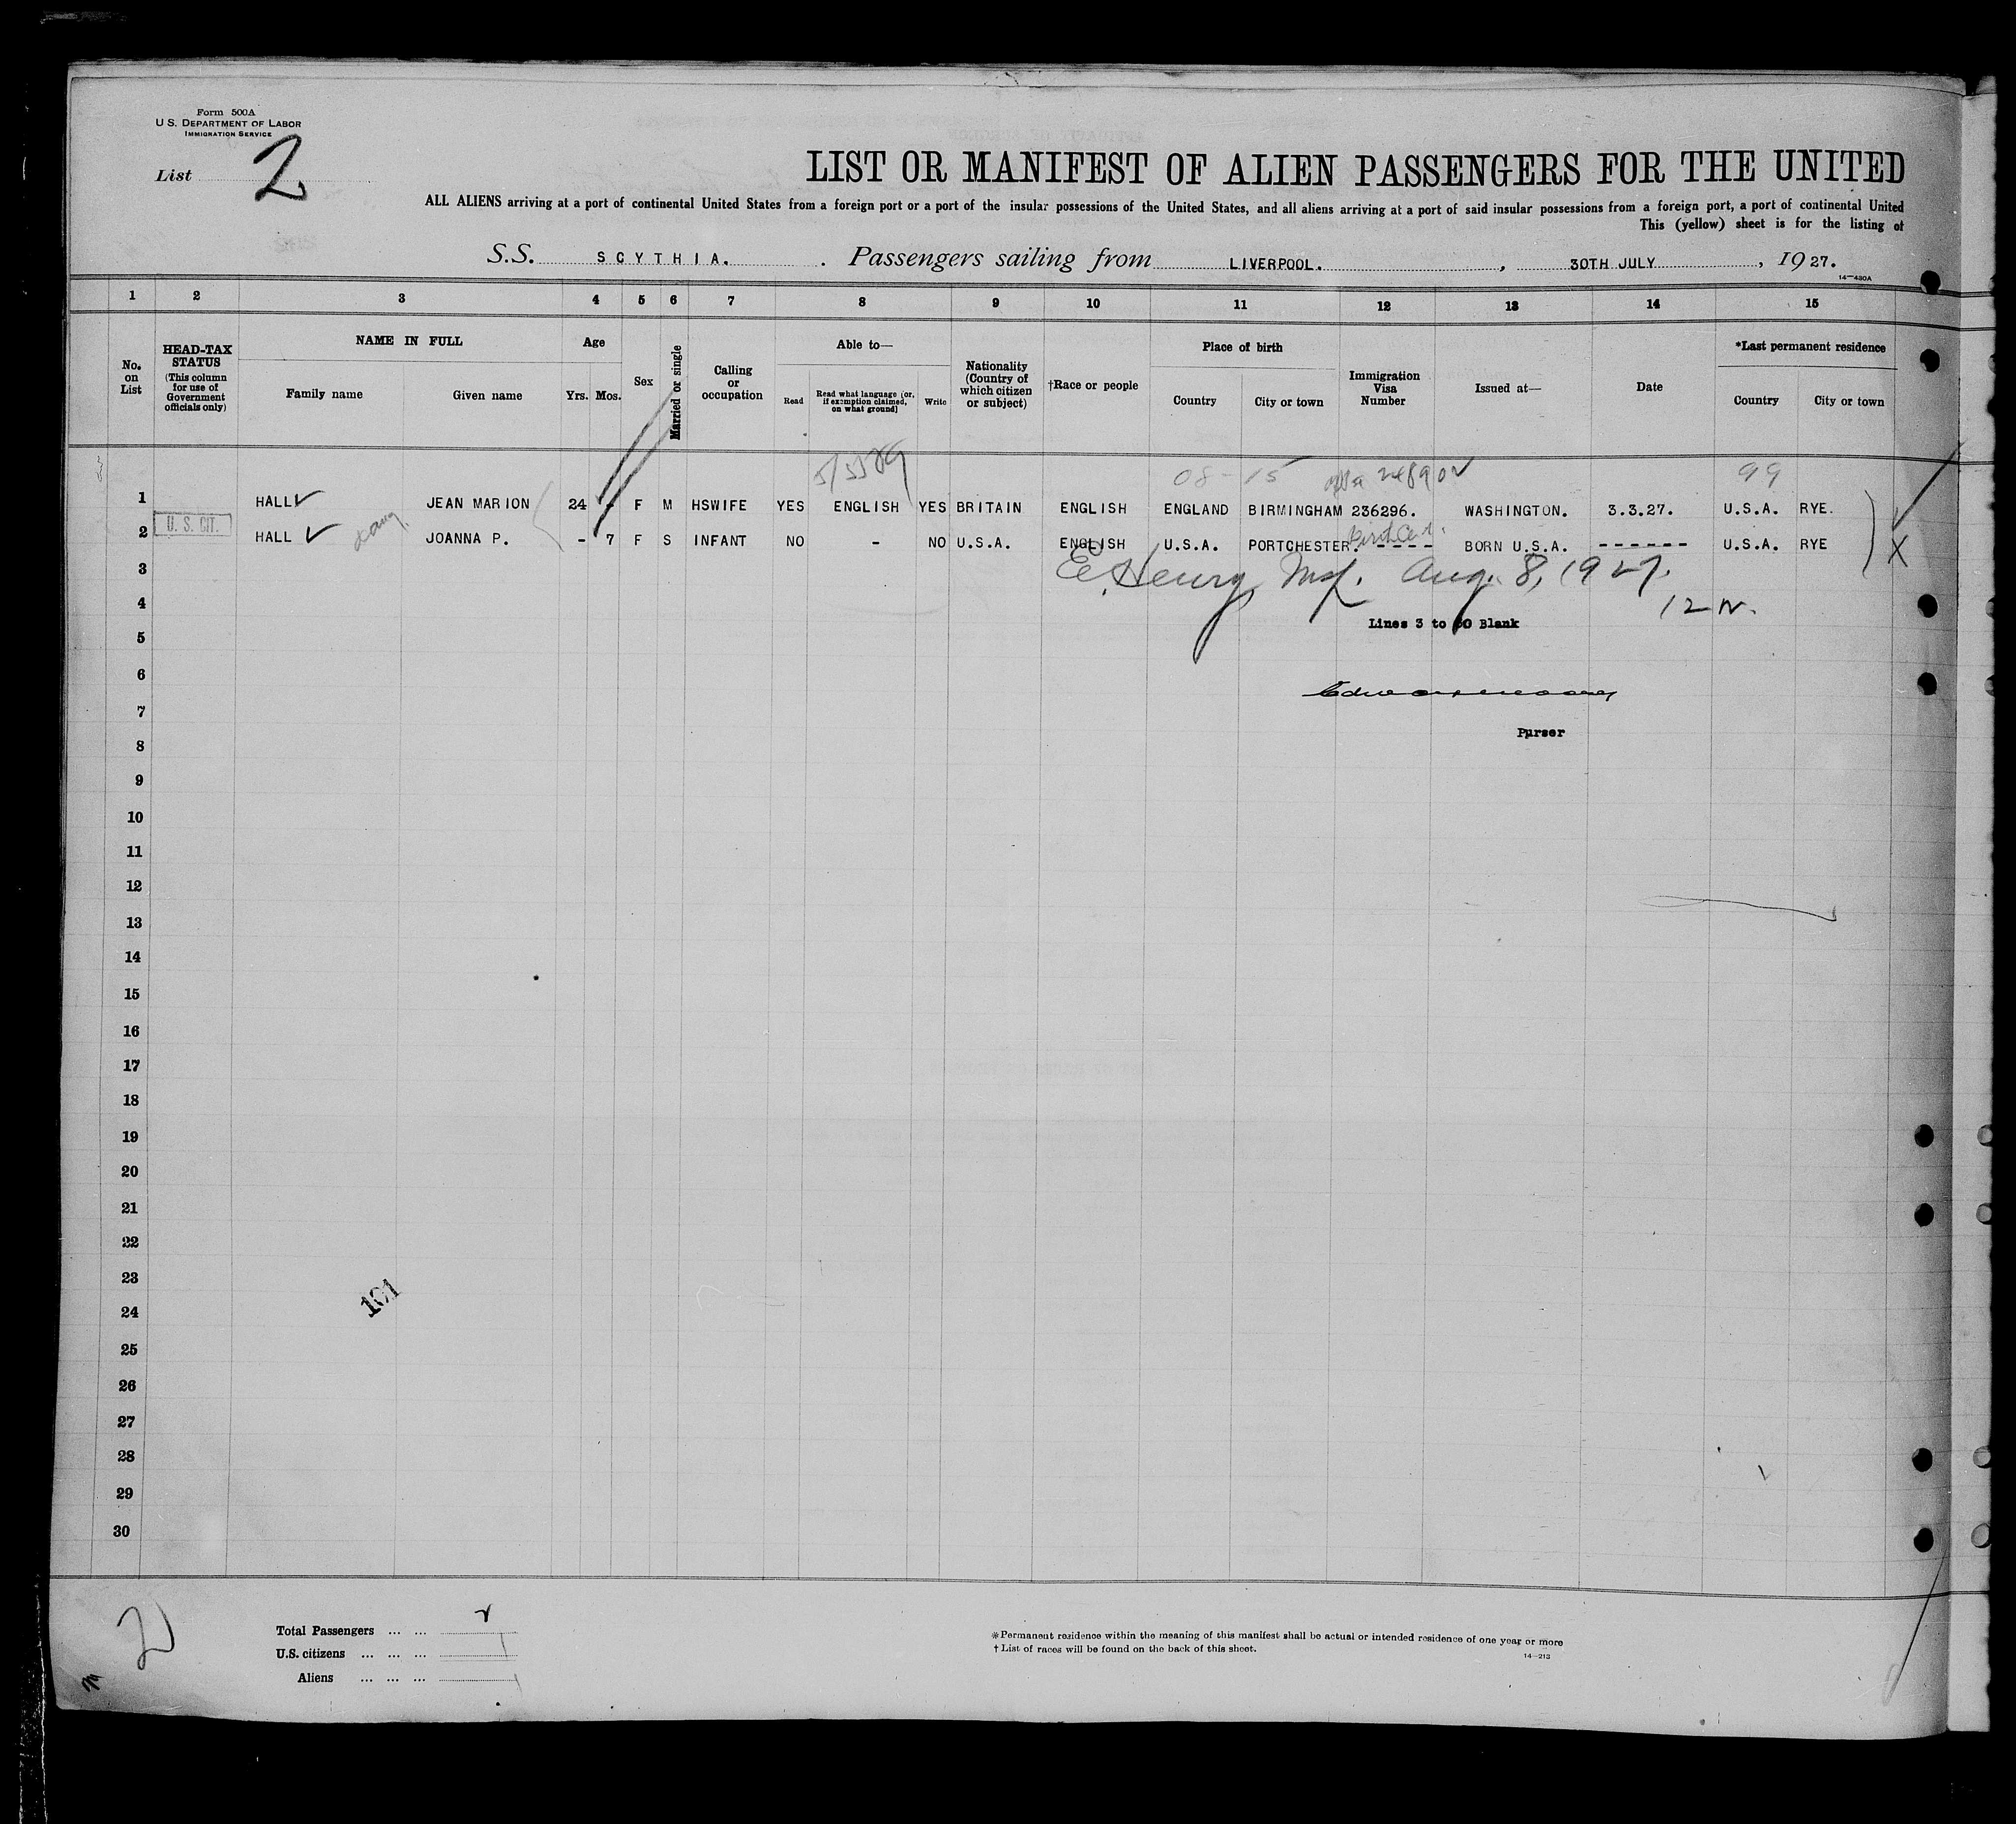 Form 500A
U.S. DEPARTMENT OF LABOR
IMMIGRATION SERVICE
List 2
LIST OR MANIFEST OF ALIEN PASSENGERS FOR THE UNITED
ALL ALIENS arriving at a port of continental United States from a foreign port or a port of the insular possessions of the United States, and all aliens arriving at a port of said insular possessions from a foreign port, a port of continental United
This (yellow) sheet is for the listing of
S.S. SCYTHIA. Passengers sailing from LIVERPOOL. , 30TH JULY , 1927.
14—430A
1 2 3 4 5 6 7 8 9 10 11 12 13 14 15
No. on List
HEAD-TAX STATUS (This column for use of Government officials only)
NAME IN FULL
Family name Given name
Age
Yrs. Mos.
Sex
Married or single
Calling or occupation
Able to—
Read
Read what language [or, if exemption claimed, on what ground]
Write
Nationality (Country of which citizen or subject)
†Race or people
Place of birth
Country City or town
Immigration Visa Number
Issued at—
Date
*Last permanent residence
Country City or town
08-15 99
1 HALL JEAN MARION 24 - F M HSWIFE YES ENGLISH YES BRITAIN ENGLISH ENGLAND BIRMINGHAM 236296. WASHINGTON. 3.3.27. U.S.A. RYE.
U. S. CIT.
2 HALL JOANNA P. - 7 F S INFANT NO - NO U.S.A. ENGLISH U.S.A. PORTCHESTER. ---- BORN U.S.A. ------ U.S.A. RYE
Birth Cert.
3
E. Henry Insp. Aug. 8, 1927.
4
12 N.
Lines 3 to 30 Blank
5
6
7
Purser
8
9
10
11
12
13
14
15
16
17
18
19
20
21
22
23
101
24
25
26
27
28
29
30
2
Total Passengers ... ... 2
U.S. citizens ... ... ... 1
Aliens ... ... ... 1
*Permanent residence within the meaning of this manifest shall be actual or intended residence of one year or more
† List of races will be found on the back of this sheet.
14—213